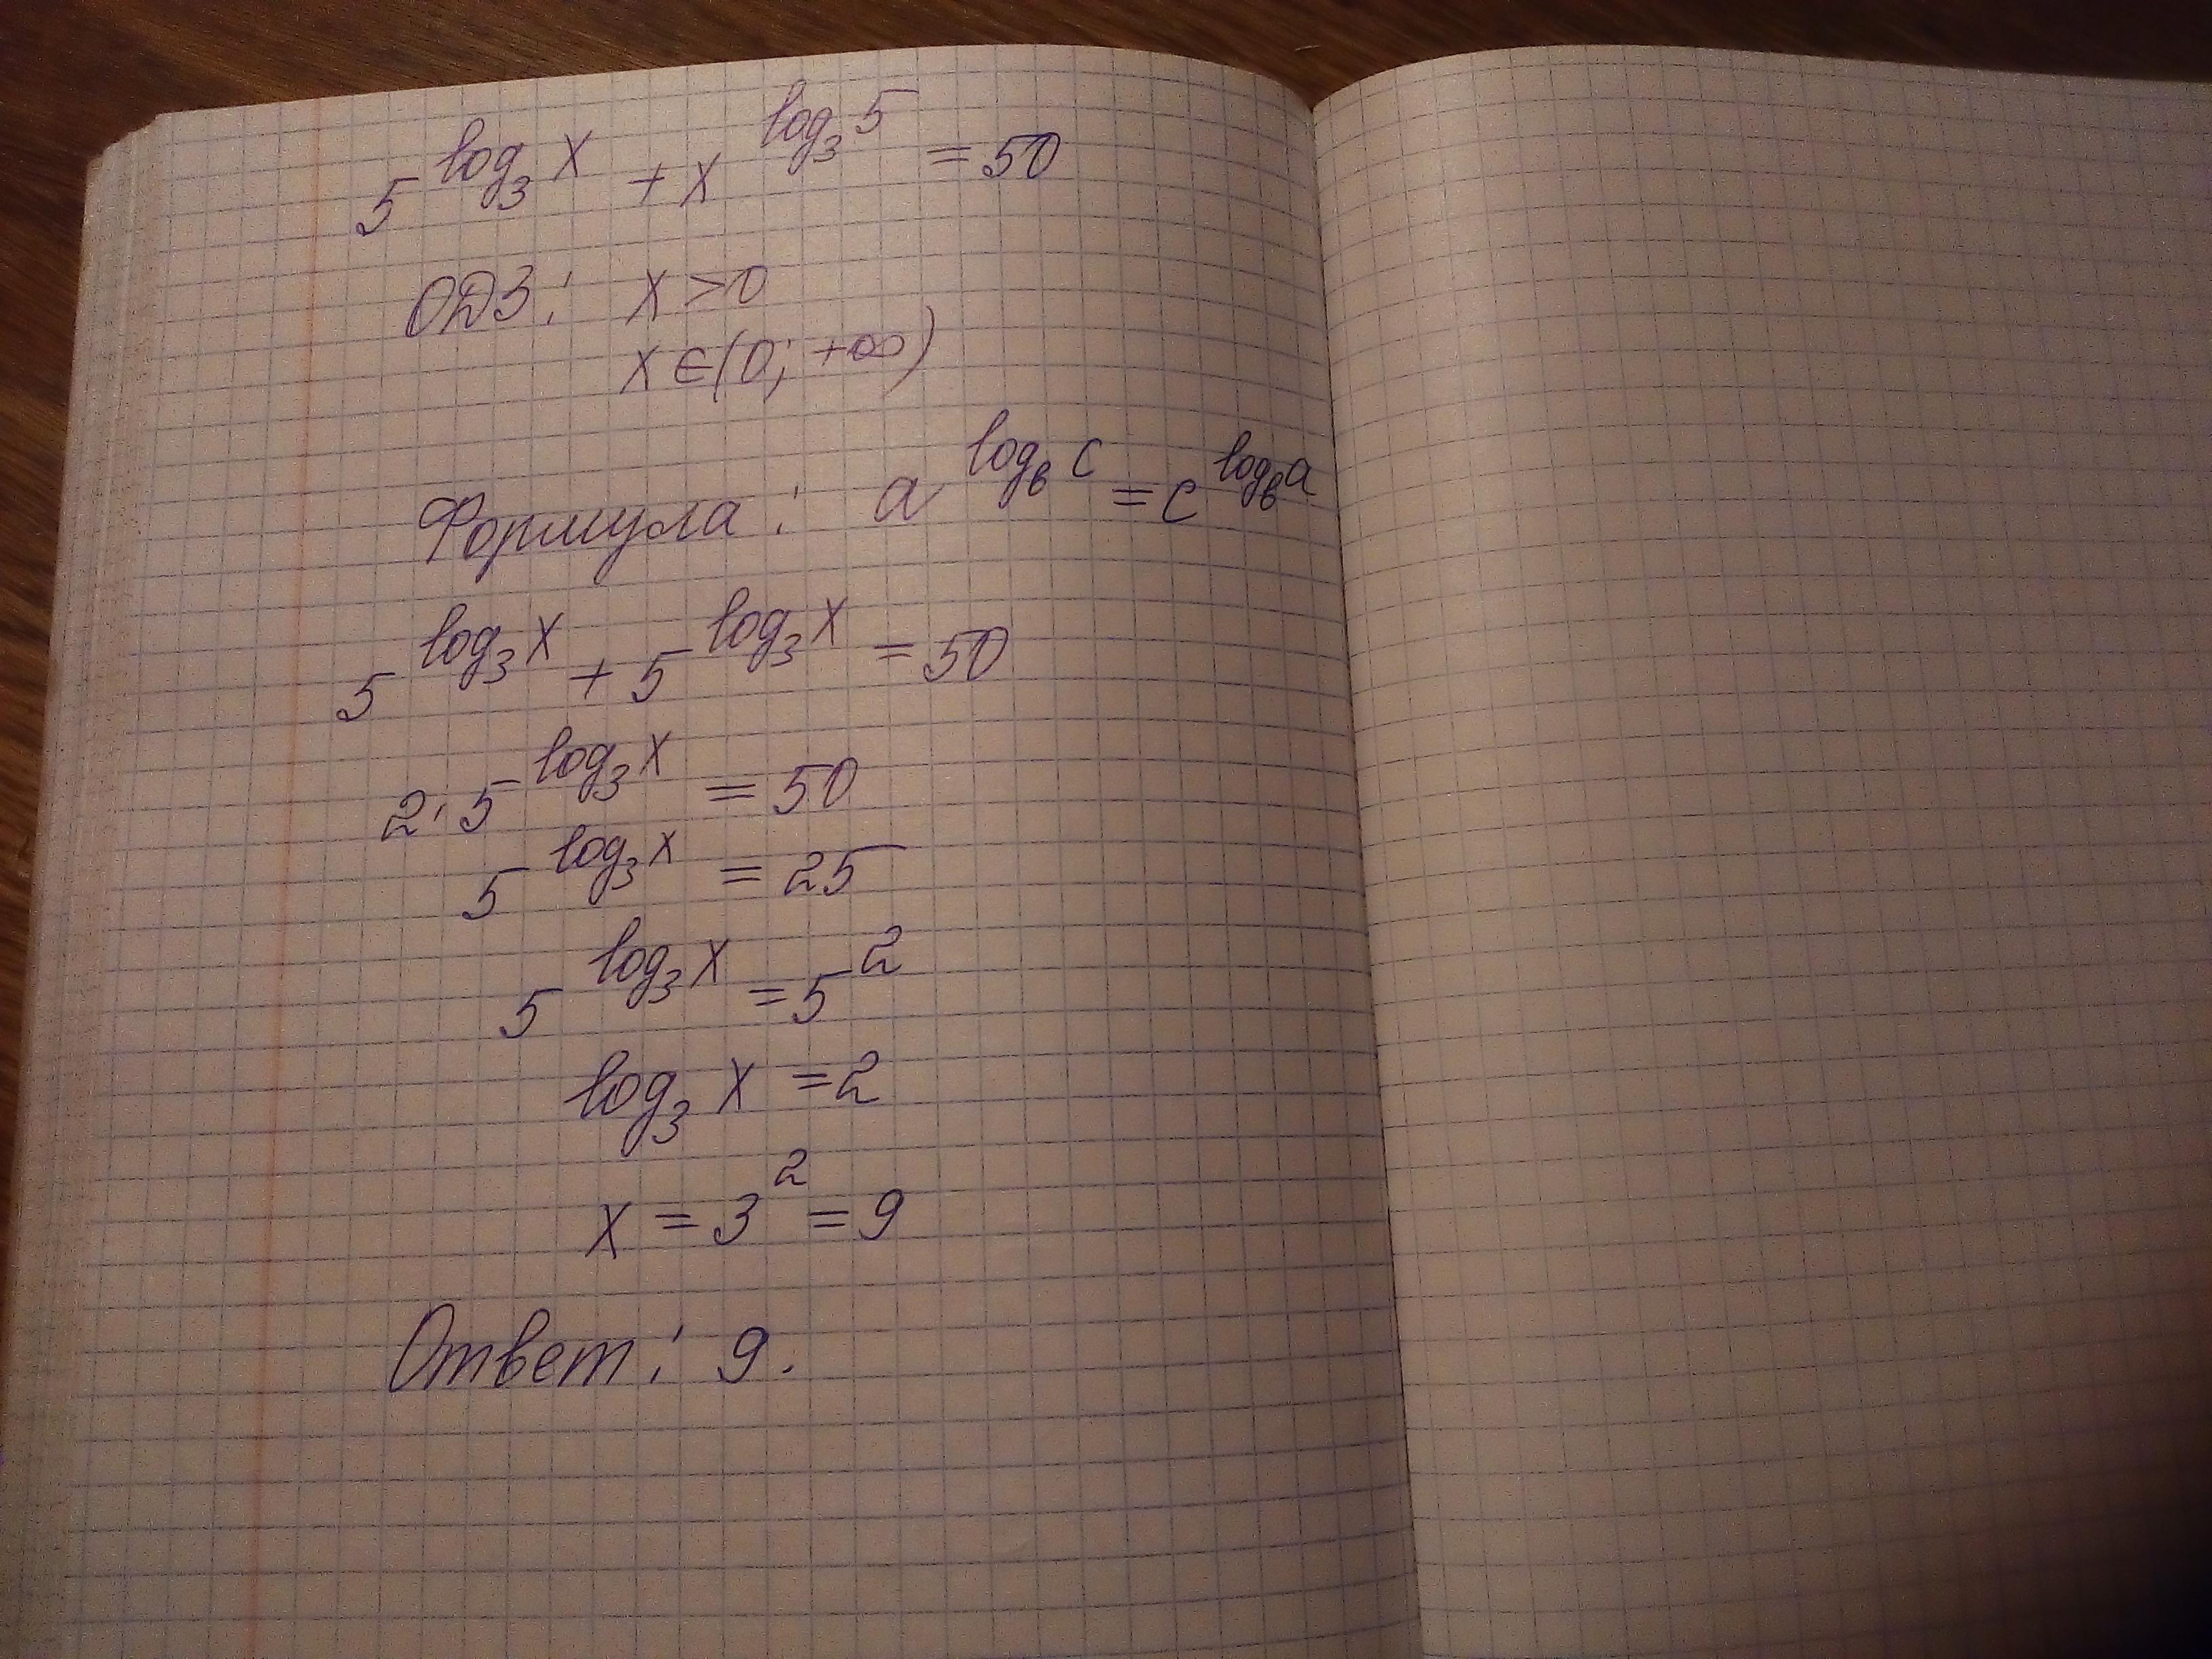 5^{log_3 x} + x^{log_3 5} = 50
ОДЗ: x > 0
x ∈ (0; +∞)
Формула: a^{log_в c} = c^{log_в a}
5^{log_3 x} + 5^{log_3 x} = 50
2 · 5^{log_3 x} = 50
5^{log_3 x} = 25
5^{log_3 x} = 5^2
log_3 x = 2
x = 3^2 = 9
Ответ: 9.